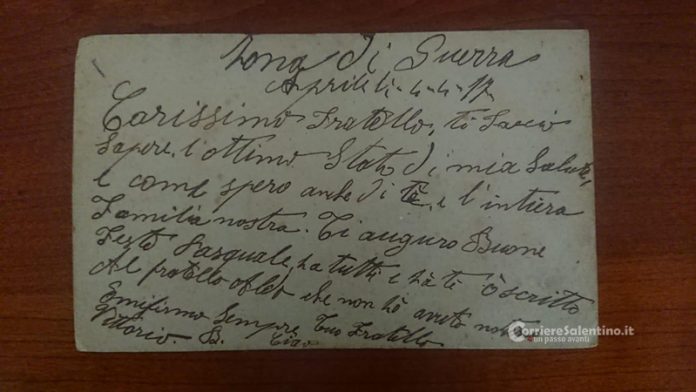 Zona di Guerra
Aprile li 4-4-17
Carissimo Fratello, ti Faccio
Sapere, l'ottimo Stato di mia Salute,
e come spero anche di te, e l'intiera
Familia nostra. Ti auguro Buone
Feste Pasquale, ha tutti e hà te ò scritto
Al fratello che non hò avuto
Mi firmo Sempre Tuo Fratello
Vittorio. B. Ciao
CorriereSalentino.it
un passo avanti